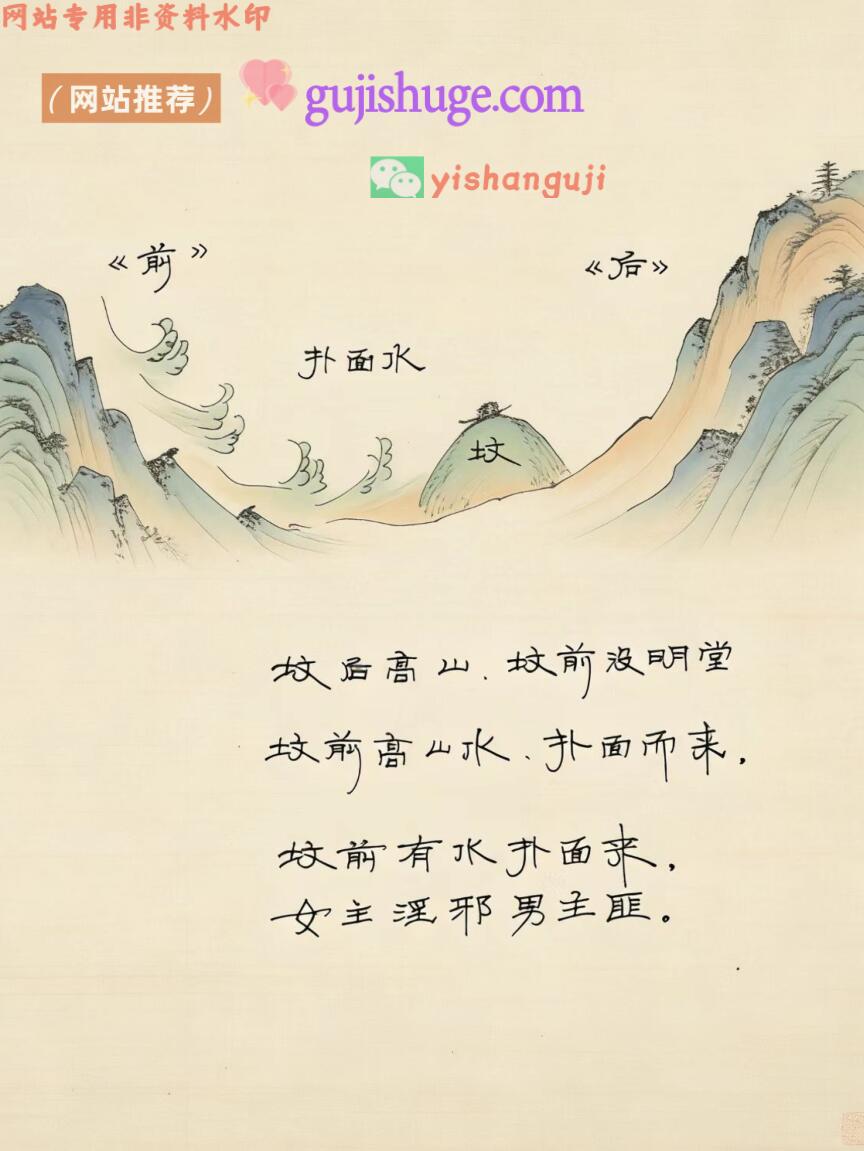 网站专用非资料水印
（网站推荐）
gujishuge.com
yishanguji
《前》
《后》
扑面水
坟
坟后高山、坟前没明堂
坟前高山水、扑面而来，
坟前有水扑面来，
女主淫邪男主匪。